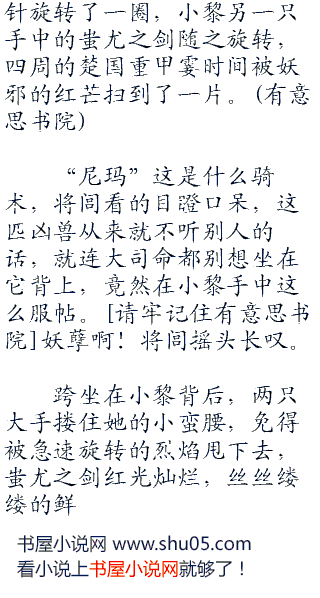 针旋转了一圈，小黎另一只
手中的蚩尤之剑随之旋转，
四周的楚国重甲霎时间被妖
邪的红芒扫到了一片。(有意
思书院)
“尼玛”这是什么骑
术，将闾看的目瞪口呆，这
匹凶兽从来就不听别人的
话，就连大司命都别想坐在
它背上，竟然在小黎手中这
么服帖。[请牢记住有意思书
院]妖孽啊！将闾摇头长叹。
跨坐在小黎背后，两只
大手搂住她的小蛮腰，免得
被急速旋转的烈焰甩下去，
蚩尤之剑红光灿烂，丝丝缕
缕的鲜
书屋小说网 www.shu05.com
看小说上书屋小说网就够了！